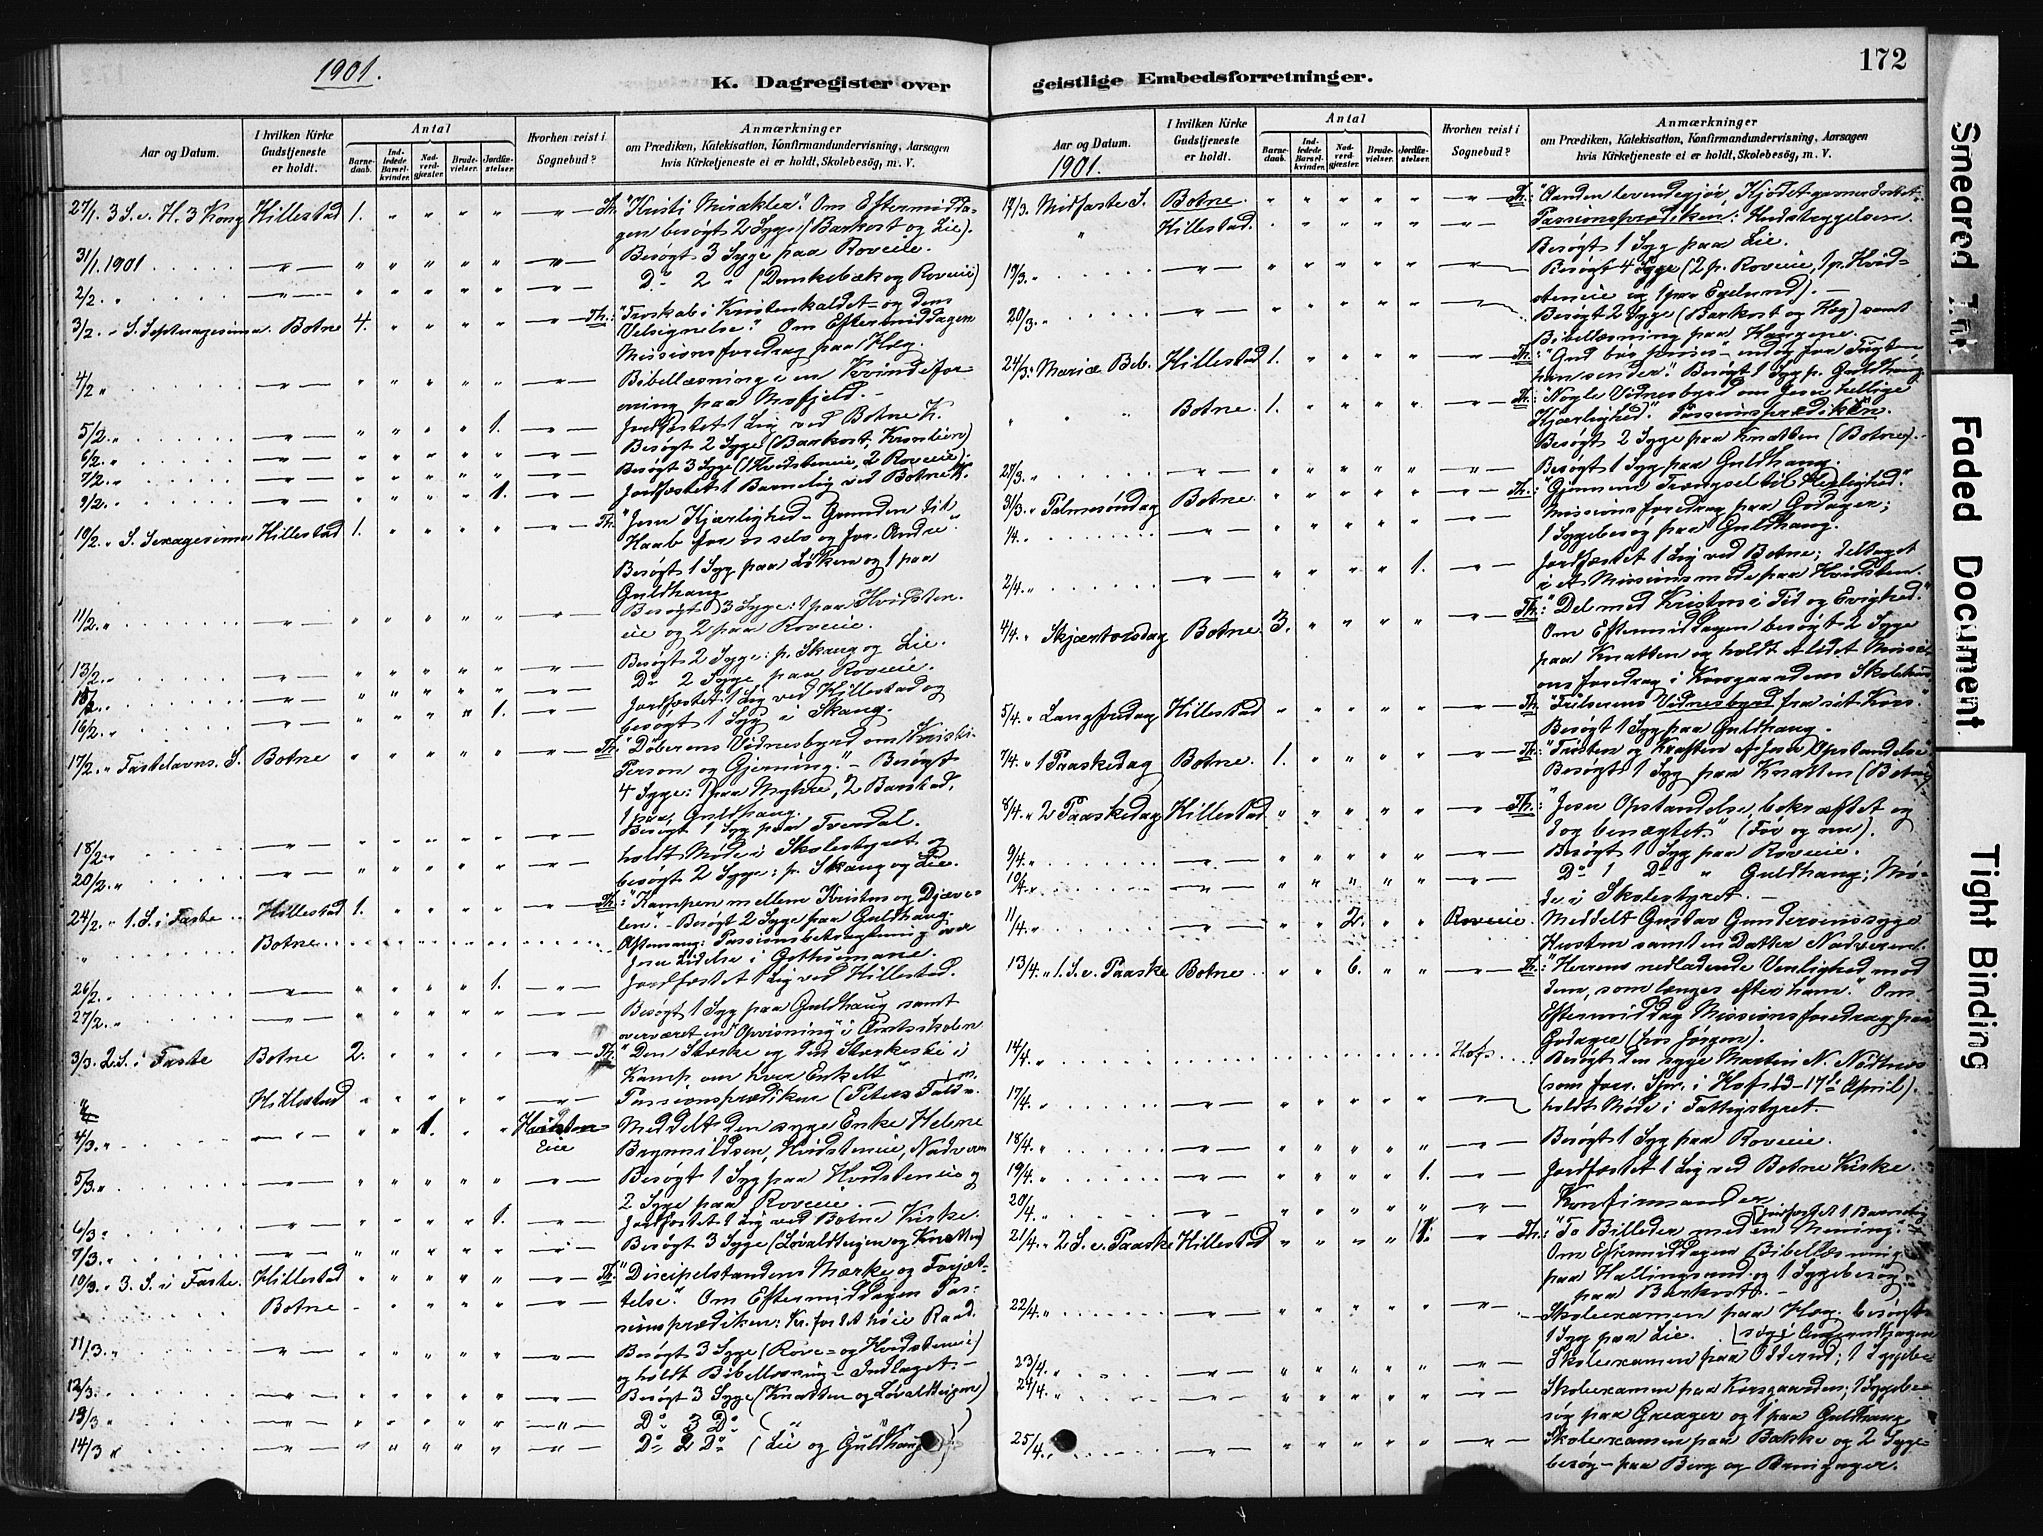 1901.
K. Dagregister over
Aar og Datum.
I hvilken Kirke Gudstjeneste er holdt.
Antal
Barnedaab.
Indledede Barselkvinder.
Nadverdgjæster.
Brudevielser.
Jordfæstelser.
Hvorhen reist i Sognebud?
Anmærkninger
om Prædiken, Katekisation, Konfirmandundervisning, Aarsagen
hvis Kirketjeneste ei er holdt, Skolebesøg, m. V.
27/1. 3 S. e. H. 3 Kong Hillestad 1. Th. "Kristi Mirakler". Om Eftermidda-
gen besøgt 2 Syge (Barkost og Lie).
31/1. 1901 Besøgt 3 Syge paa Roveie.
2/2. " Do 2 " (Dunkebæk og Roveie)
3/2. " S. Septuagesima Botne 4. Th: "Troskab i Kristenkaldet = og dens
Velsignelse." Om Eftermiddagen
Missionsforedrag paa Hæg.
4/2 " Bibellæsning i en Kvindefor-
ening paa Mofjeld. -
5/2. " 1. Jordfæstet 1 Lig ved Botne K.
6/2. " Besøgt 2 Syge (Barkost, Kronlien)
7/2. " Besøgt 3 Syge (1 Hvidsteneie, 2 Roveie).
9/2. " 1. Jordfæstet 1 Barnelig ved Botne K.
10/2. " S. Sexagesima Hillestad 1. Th. "Jesu Kjærlighed - Grunden til
Haab for os selv og for Andre"
Besøgt 1 Syg paa Løken og 1 paa
Guldhaug
11/2. " Besøgt 3 Syge: 1 paa Hvidsten-
eie og 2 paa Roveie.
13/2. " Besøgt 2 Syge: p. Skaug og Lie.
15/2. " Do 2 Syge paa Roveie.
16/2. " 1. Jordfæstet 1 Lig ved Hillestad og
besøgt 1 Syg i Skaug.
17/2. " Fastelavns. S. Botne Th: "Døberens Vidnesbyrd om Kristi
Person og Gjerning." - Besøgt
4 Syge: 1 paa Myhre, 2 Barstad,
1 paa Guldhaug.
18/2. " Besøgt 1 Syg paa Tverdal.
20/2. " holdt Møde i Skolestyret og
besøgt 2 Syge: p. Skaug og Lie.
24/2. " 1. S. i Faste Hillestad 1. Th: "Kampen mellem Kristus og Djæve-
len". - Besøgt 2 Syge paa Guldhaug.
" Botne Aftensang: Passionsbetragtning over
Jesu Lidelse i Gethsemane.
26/2. " 1. Jordfæstet 1 Lig ved Hillestad.
27/2. " Besøgt 1 Syg paa Guldhaug samt
overværet en "Opvisning" i Amtsskolen
3/3. 2. S. i Faste Botne 2. Th. "Den Stærke og den Stærkeste i
Kamp om hver Enkelt"
" Hillestad Passionsprædiken (Peters Fald).
4/3. " 1. Hvidsten-
Eie Meddelt den syge Enke Helene
Brynnildsen, Hvidsteneie, Nadveren
5/3. " Besøgt 1 Syg paa Hvidsteneie og
2 Syge paa Roveie. -
6/3. " 1. Jordfæstet 1 Lig ved Botne Kirke.
7/3. " Besøgt 3 Syge (Løvaldteigen og Knatten)
10/3. " 3. S. i Faste. Hillestad Th. "Discipelstandens Mærke og Forjæt-
telse". Om Eftermiddagen Pas-
Botne sionsprædiken: Kr. for det høie Raad.
11/3. " Besøgt 3 Syge (Rove= og Hvidsteneie)
og holdt Bibellæsning - Indlaget. -
12/3. " Besøgt 3 Syge (Knatten og Løvaldteigen)
13/3 " Do 3 Do
14/3 " Do 2 Do (Lie og Guldhaug)
geistlige Embedsforretninger.
172
Aar og Datum.
1901.
I hvilken Kirke Gudstjeneste er holdt.
Antal
Barnedaab.
Indledede Barselkvinder.
Nadverdgjæster.
Brudevielser.
Jordfæstelser.
Hvorhen reist i Sognebud?
Anmærkninger
om Prædiken, Katekisation, Konfirmandundervisning, Aarsagen
hvis Kirketjeneste ei er holdt, Skolebesøg, m. V.
17/3. Midfaste S. Botne Th: "Aanden levendegjør, Kjødet gavner Intet."
" Hillestad. Passionsprædiken: Hudstrygelsen.
Besøgt 1 Syg paa Lie.
19/3. " Besøgt 4 Syge (2 p. Roveie, 1 p. Hvid-
steneie og 1 paa Egelund). -
20/3. " Besøgt 2 Syge (Barkost og Hæg) samt
Bibellæsning paa Haugene.
24/3. " Mariæ Beb. Hillestad 1. Th: "Gud bør prises - endog for Tugten
han sender". Besøgt 1 Syg p. Guldhaug
" " Botne. 1. Th: "Nogle Vidnesbyrd om Jesu hellige
Kjærlighed". Passionsprædiken.
Besøgt 2 Syge paa Knatten (Botne).
27/3. " Besøgt 1 Syg paa Guldhaug.
31/3. " Palmesøndag Botne Th: "Gjennem Trængsel til Herlighed."
Missionsforedrag paa Godager;
1/4. 1 Sygebesøg paa Guldhaug.
2/4. " 1. Jordfæstet 1 Lig ved Botne; deltaget
i et Missionsmøde paa Hvidsten.
4/4. " Skjærtorsdag Botne 3. Th: "Del med Kristus i Tid og Evighed."
Om Eftermiddagen besøgt 2 Syge
paa Knatten og holdt et lidet Missi-
onsforedrag i Korsgaardens Skolehus
5/4. " Langfredag Hillestad Th: "Frelserens Vidnesbyrd fra sit Kors"
Besøgt 1 Syg paa Guldhaug.
7/4. " 1 Paaskedag Botne. 1. Th: "Trøsten og Kraften af Jesu Opstandelse"
Besøgt 1 Syg paa Knatten (Botne)
8/4. " 2 Paaskedag Hillestad Th: "Jesu Opstandelse, bekræftet og
dog benægtet" (Før og nu).
9/4. " Besøgt 1 Syg paa Roveie.
10/4. " Do 1 Do " Guldhaug; Mø-
de i Skolestyret. -
11/4. " 2. Roveie. Meddelt Gustav Gundersens syge
Hustru samt en Datter Nadveren.
13/4. " 1. S. e. Paaske Botne 6. Th: "Herrens nedladende Venlighed mod
dem, som længes efter ham." Om
Eftermiddag Missionsforedrag paa
Godager (hos Jørgen).
14/4. " Hofs. Besøgt den syge Martin N. Nødtnes
(som forr. Spr. i Hofs 13-17de April).
17/4. " holdt Møde i Fattigstyret.
18/4. " Besøgt 1 Syg paa Roveie.
19/4. " 1. Jordfæstet 1 Lig ved Botne Kirke.
20/4. " Konfirmander
21/4. " 2 S. e. Paaske Hillestad 1. Th: "To Billeder med en Mening". (jordfæstet 1 Barnelig)
Om Eftermiddagen Bibellæsning
paa Hallingsrud og 1 Sygebesøg
paa Barkost. -
22/4. " Skoleexamen paa Hæg. besøgt
1 Syg paa Lie.
23/4. " Skoleexamen paa Odderud; 1 Sygebe-
(søg i Angerudhagen
24/4. " Skoleexamen paa Korsgaarden; 1 Sygebe-
søg paa Greager og 1 paa Guldhaug
25/4. " Skoleexamen paa Bakke og 2 Syge-
besøg - paa Berg og Brungager.
Smeared Ink
Faded Document
Tight Binding